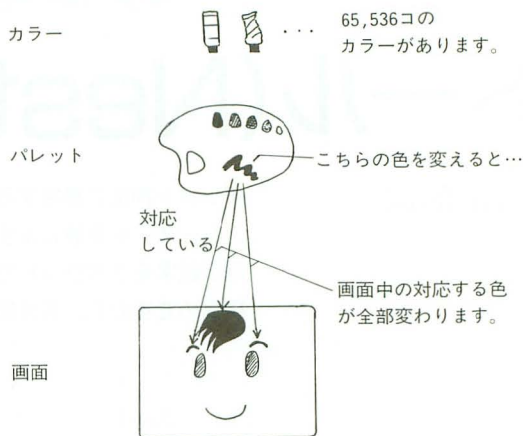 カラー
・・・
65,536コの
カラーがあります。
パレット
こちらの色を変えると…
対応
している
画面中の対応する色
が全部変わります。
画面